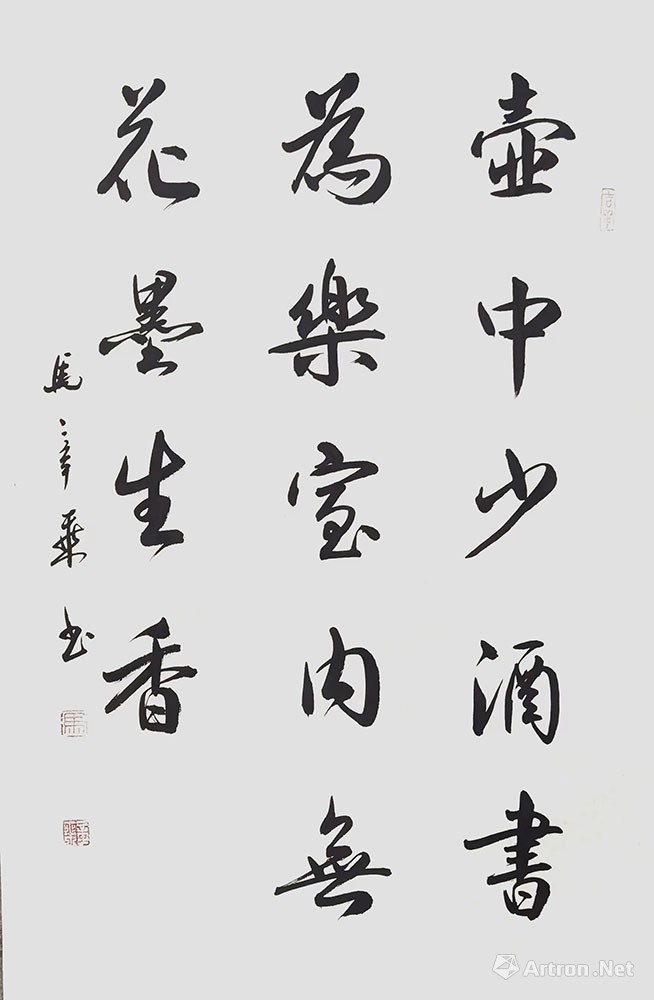 壺中少酒書
為樂室内無
花墨生香
馬彦業书
Artron.Net